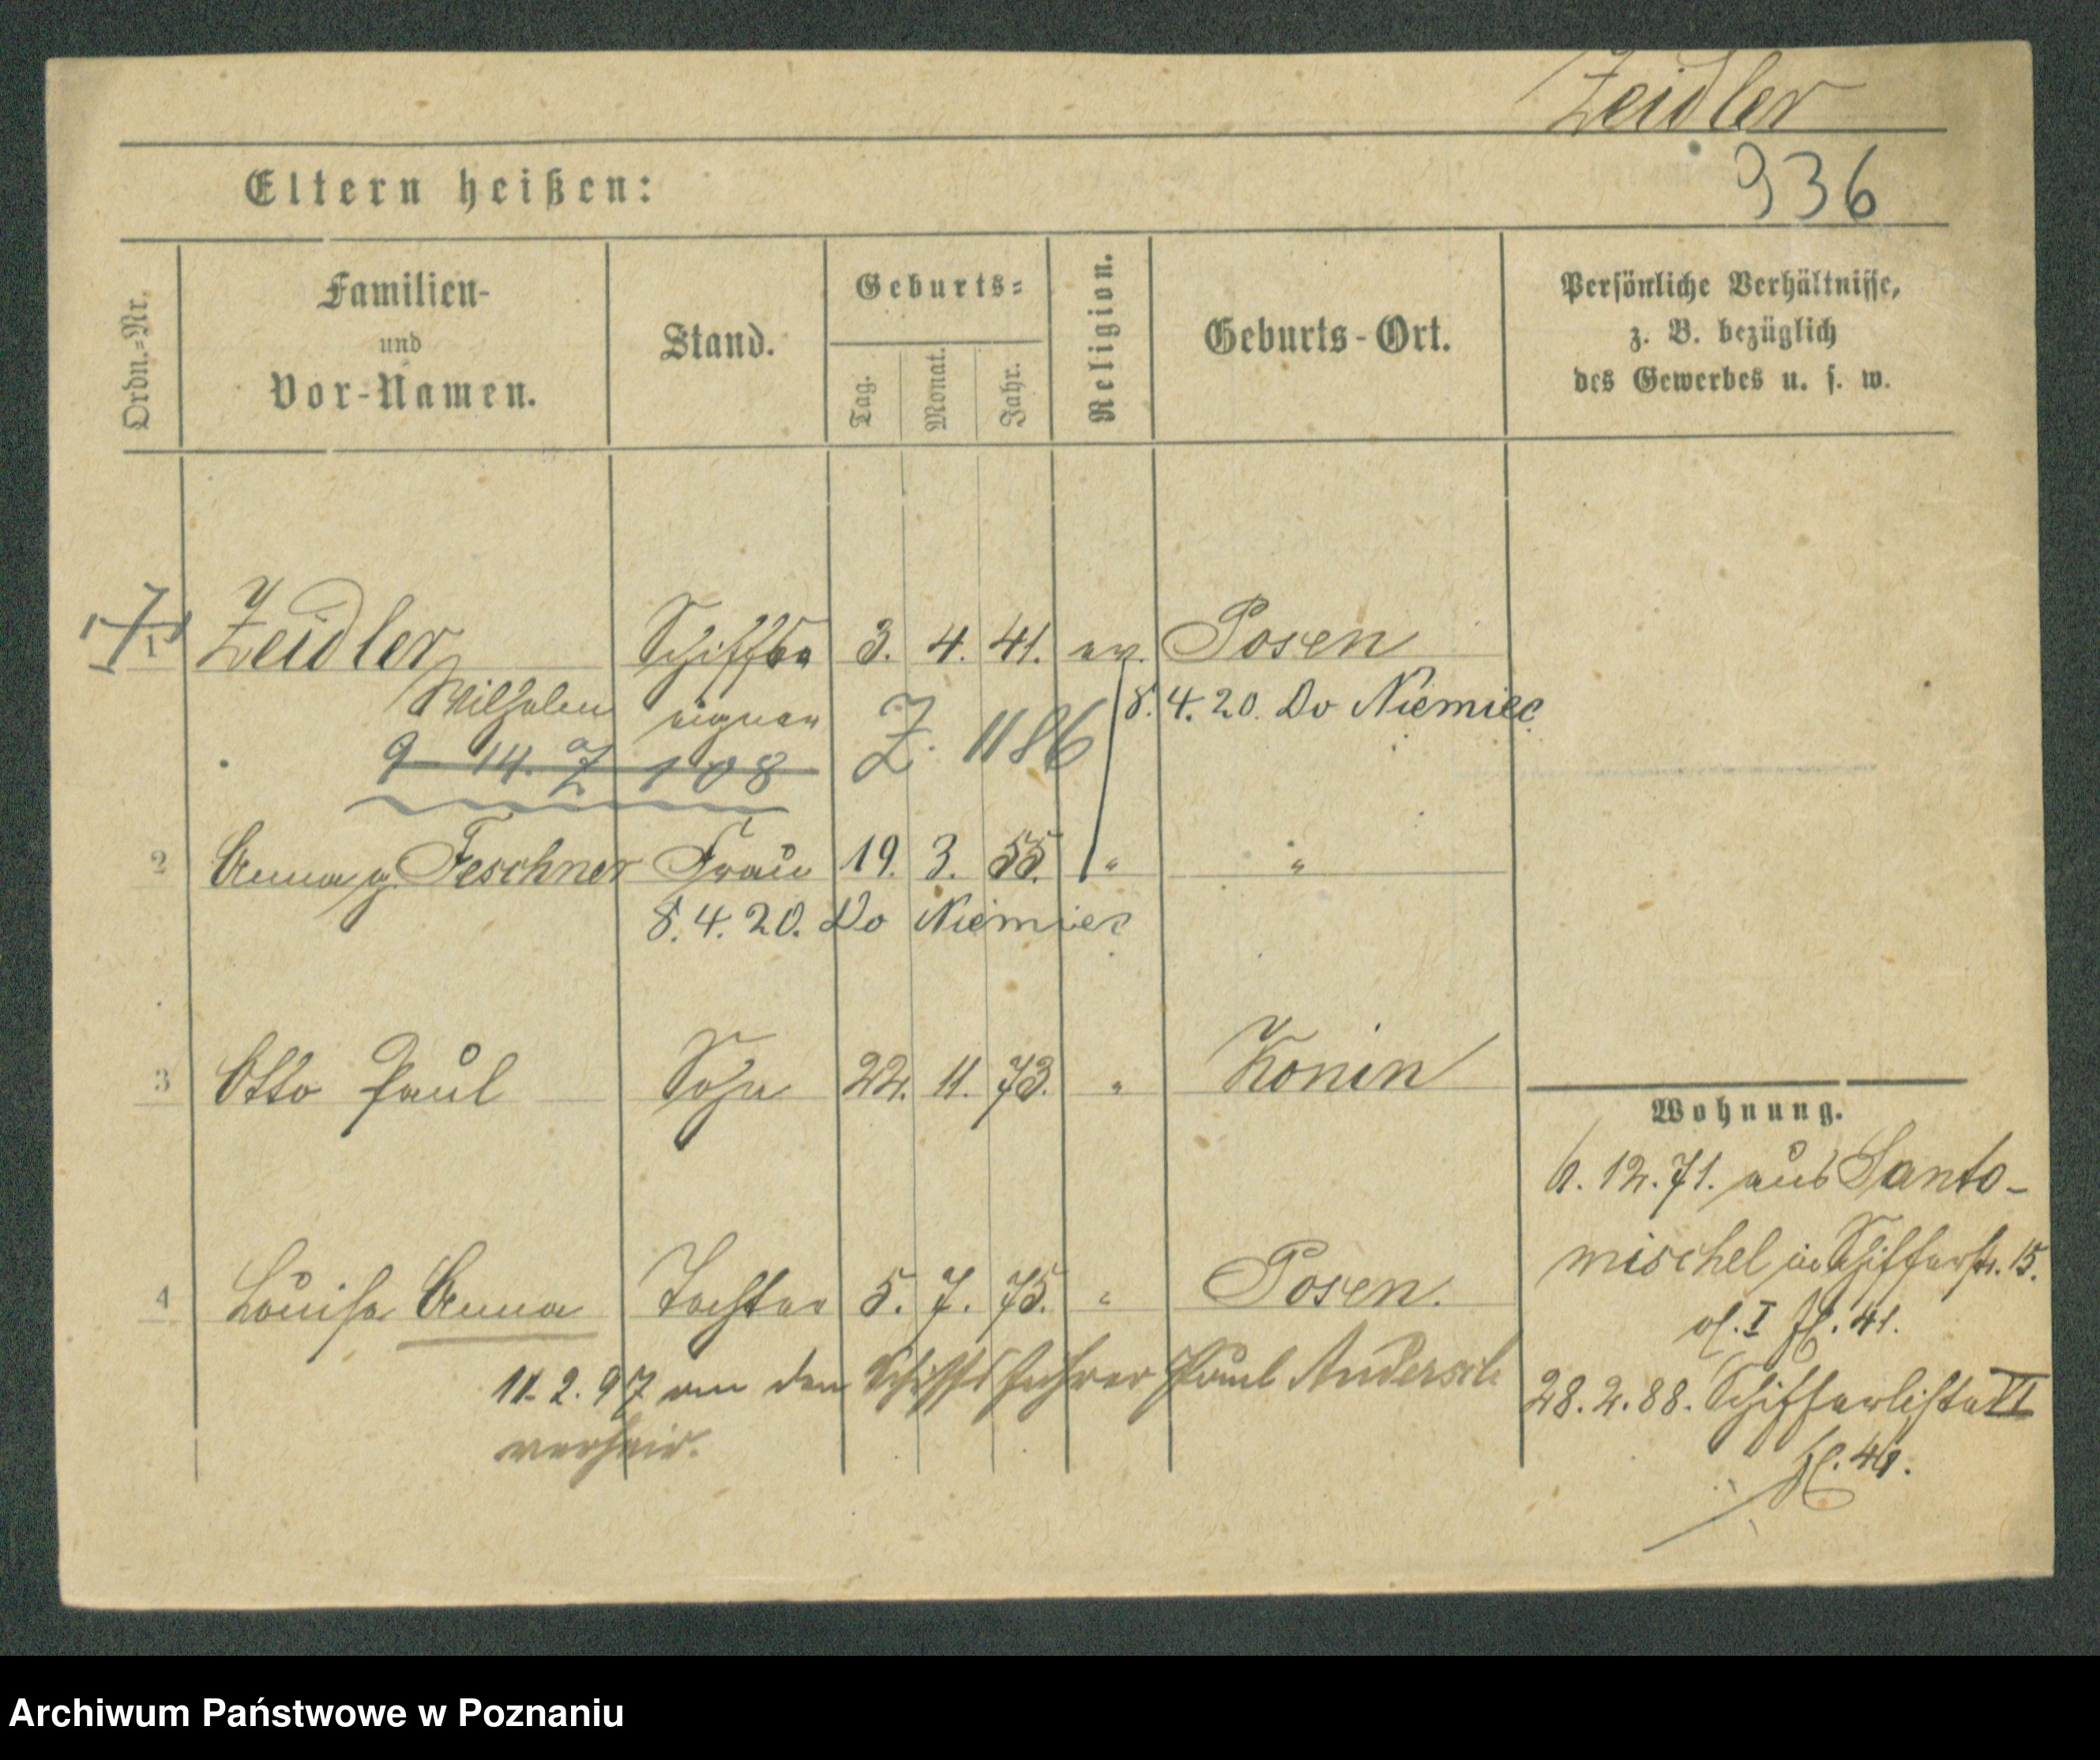 Zeidler
936
Eltern heißen:
Ordn.=Nr.
Familien-
und
Vor-Namen.
Stand.
Geburts=
Tag.
Monat.
Jahr.
Religion.
Geburts-Ort.
Persönliche Verhältnisse,
z. B. bezüglich
des Gewerbes u. s. w.
1 Zeidler Schiffs 3. 4. 41. ev. Posen
Wilhelm eigner Z. 1186 8.4.20. Do Niemiec
9 14. 7 108
2 Anna g. Feschner Frau 19. 3. 55. " "
8.4.20. Do Niemiec
3 Otto Paul Sohn 22. 11. 73. " Konin
Wohnung.
6.12.71. aus Santo-
mischel in Schifferstr. 15.
4 Louise Anna Tochter 5. 7. 75. " Posen.
I 41.
11.2.97 an den Schiffsführer Paul Andersch
verheir.
28.2.88. Schifferliste VI